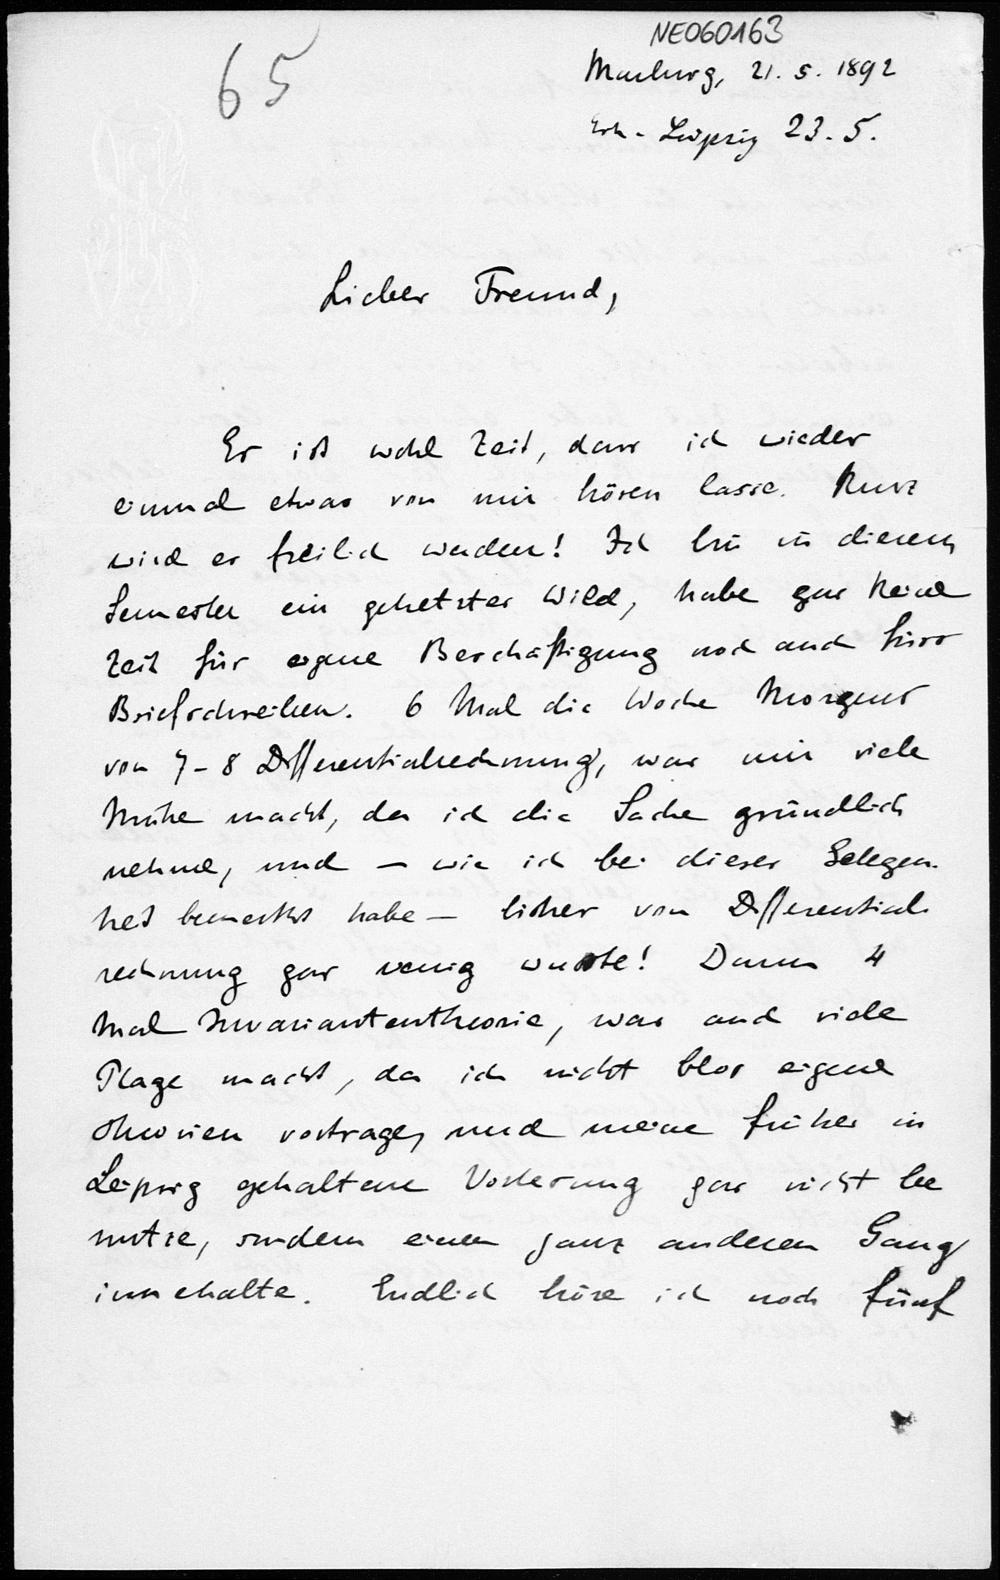 NE060163
65
Marburg, 21. 5. 1892
Erh. Leipzig 23. 5.
Lieber Freund,
Es ist wohl Zeit, dass ich wieder
einmal etwas von mir hören lasse. Kurz
wird es freilich werden! Ich bin in diesem
Semester ein gehetztes Wild, habe gar keine
Zeit für eigene Beschäftigung noch auch fürs
Briefschreiben. 6 Mal die Woche Morgens
von 7-8 Differentialrechnung, was mir viele
Mühe macht, da ich die Sache gründlich
nehme, und – wie ich bei dieser Gelegen-
heit bemerkt habe – bisher von Differential-
rechnung gar wenig wusste! Dann 4
Mal Invariantentheorie, was auch viele
Plage macht, da ich nicht blos eigene
Theorien vortrage, und meine früher in
Leipzig gehaltene Vorlesung gar nicht be
nutze, sondern einen ganz anderen Gang
innehalte. Endlich höre ich noch fünf